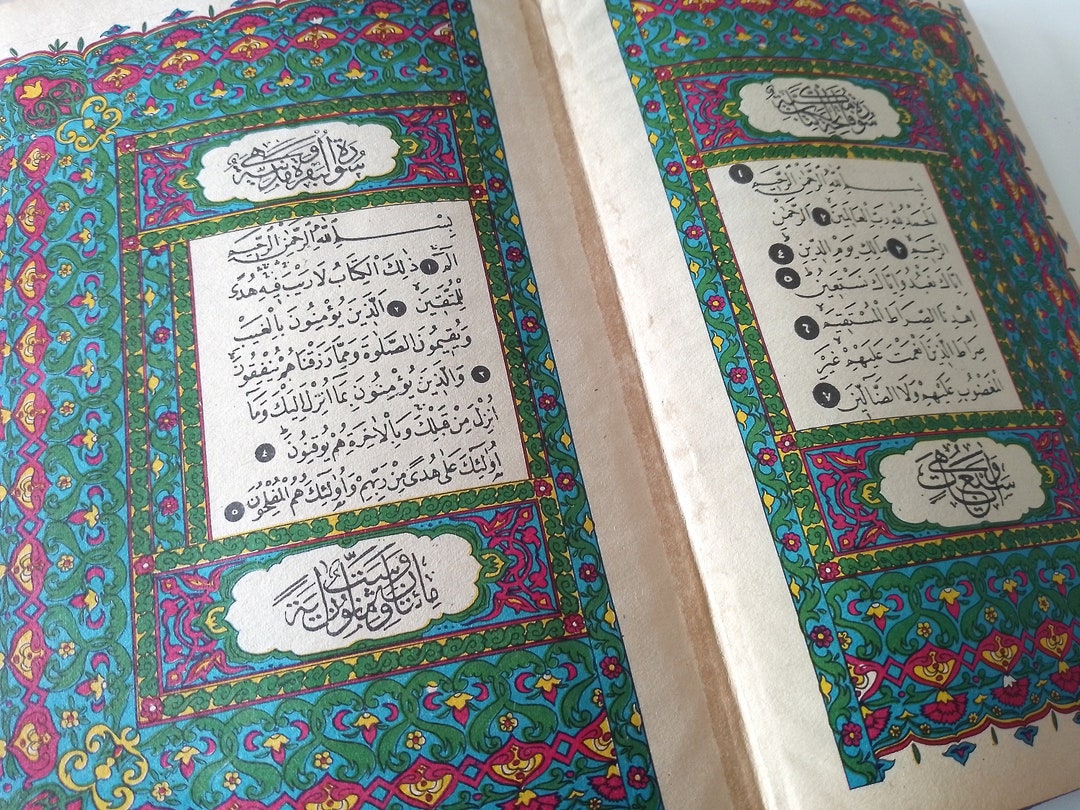 سُورَةُ فَاتِحَةِ الْكِتَابِ مَكِّيَّةٌ
بِسْمِ اللّٰهِ الرَّحْمٰنِ الرَّحِيمِ ١
اَلْحَمْدُ لِلّٰهِ رَبِّ الْعَالَمِينَ ٢ اَلرَّحْمٰنِ
الرَّحِيمِ ٣ مَالِكِ يَوْمِ الدِّينِ ٤
اِيَّاكَ نَعْبُدُ وَاِيَّاكَ نَسْتَعِينُ ٥
اِهْدِنَا الصِّرَاطَ الْمُسْتَقِيمَ ٦
صِرَاطَ الَّذِينَ اَنْعَمْتَ عَلَيْهِمْ غَيْرِ
الْمَغْضُوبِ عَلَيْهِمْ وَلَا الضَّالِّينَ ٧
سُورَةُ الْبَقَرَةِ وَهِيَ مَدَنِيَّةٌ
بِسْمِ اللّٰهِ الرَّحْمٰنِ الرَّحِيمِ
الٓمٓ ١ ذٰلِكَ الْكِتَابُ لَا رَيْبَ فِيهِ هُدًى
لِلْمُتَّقِينَ ٢ اَلَّذِينَ يُؤْمِنُونَ بِالْغَيْبِ
وَيُقِيمُونَ الصَّلٰوةَ وَمِمَّا رَزَقْنَاهُمْ يُنْفِقُونَ
٣ وَالَّذِينَ يُؤْمِنُونَ بِمَا اُنْزِلَ اِلَيْكَ وَمَا
اُنْزِلَ مِنْ قَبْلِكَ وَبِالْاٰخِرَةِ هُمْ يُوقِنُونَ ٤
اُولٰئِكَ عَلٰى هُدًى مِنْ رَبِّهِمْ وَاُولٰئِكَ هُمُ الْمُفْلِحُونَ ٥
مِائَتَانِ وَسِتٌّ وَثَمَانُونَ اٰيَةً